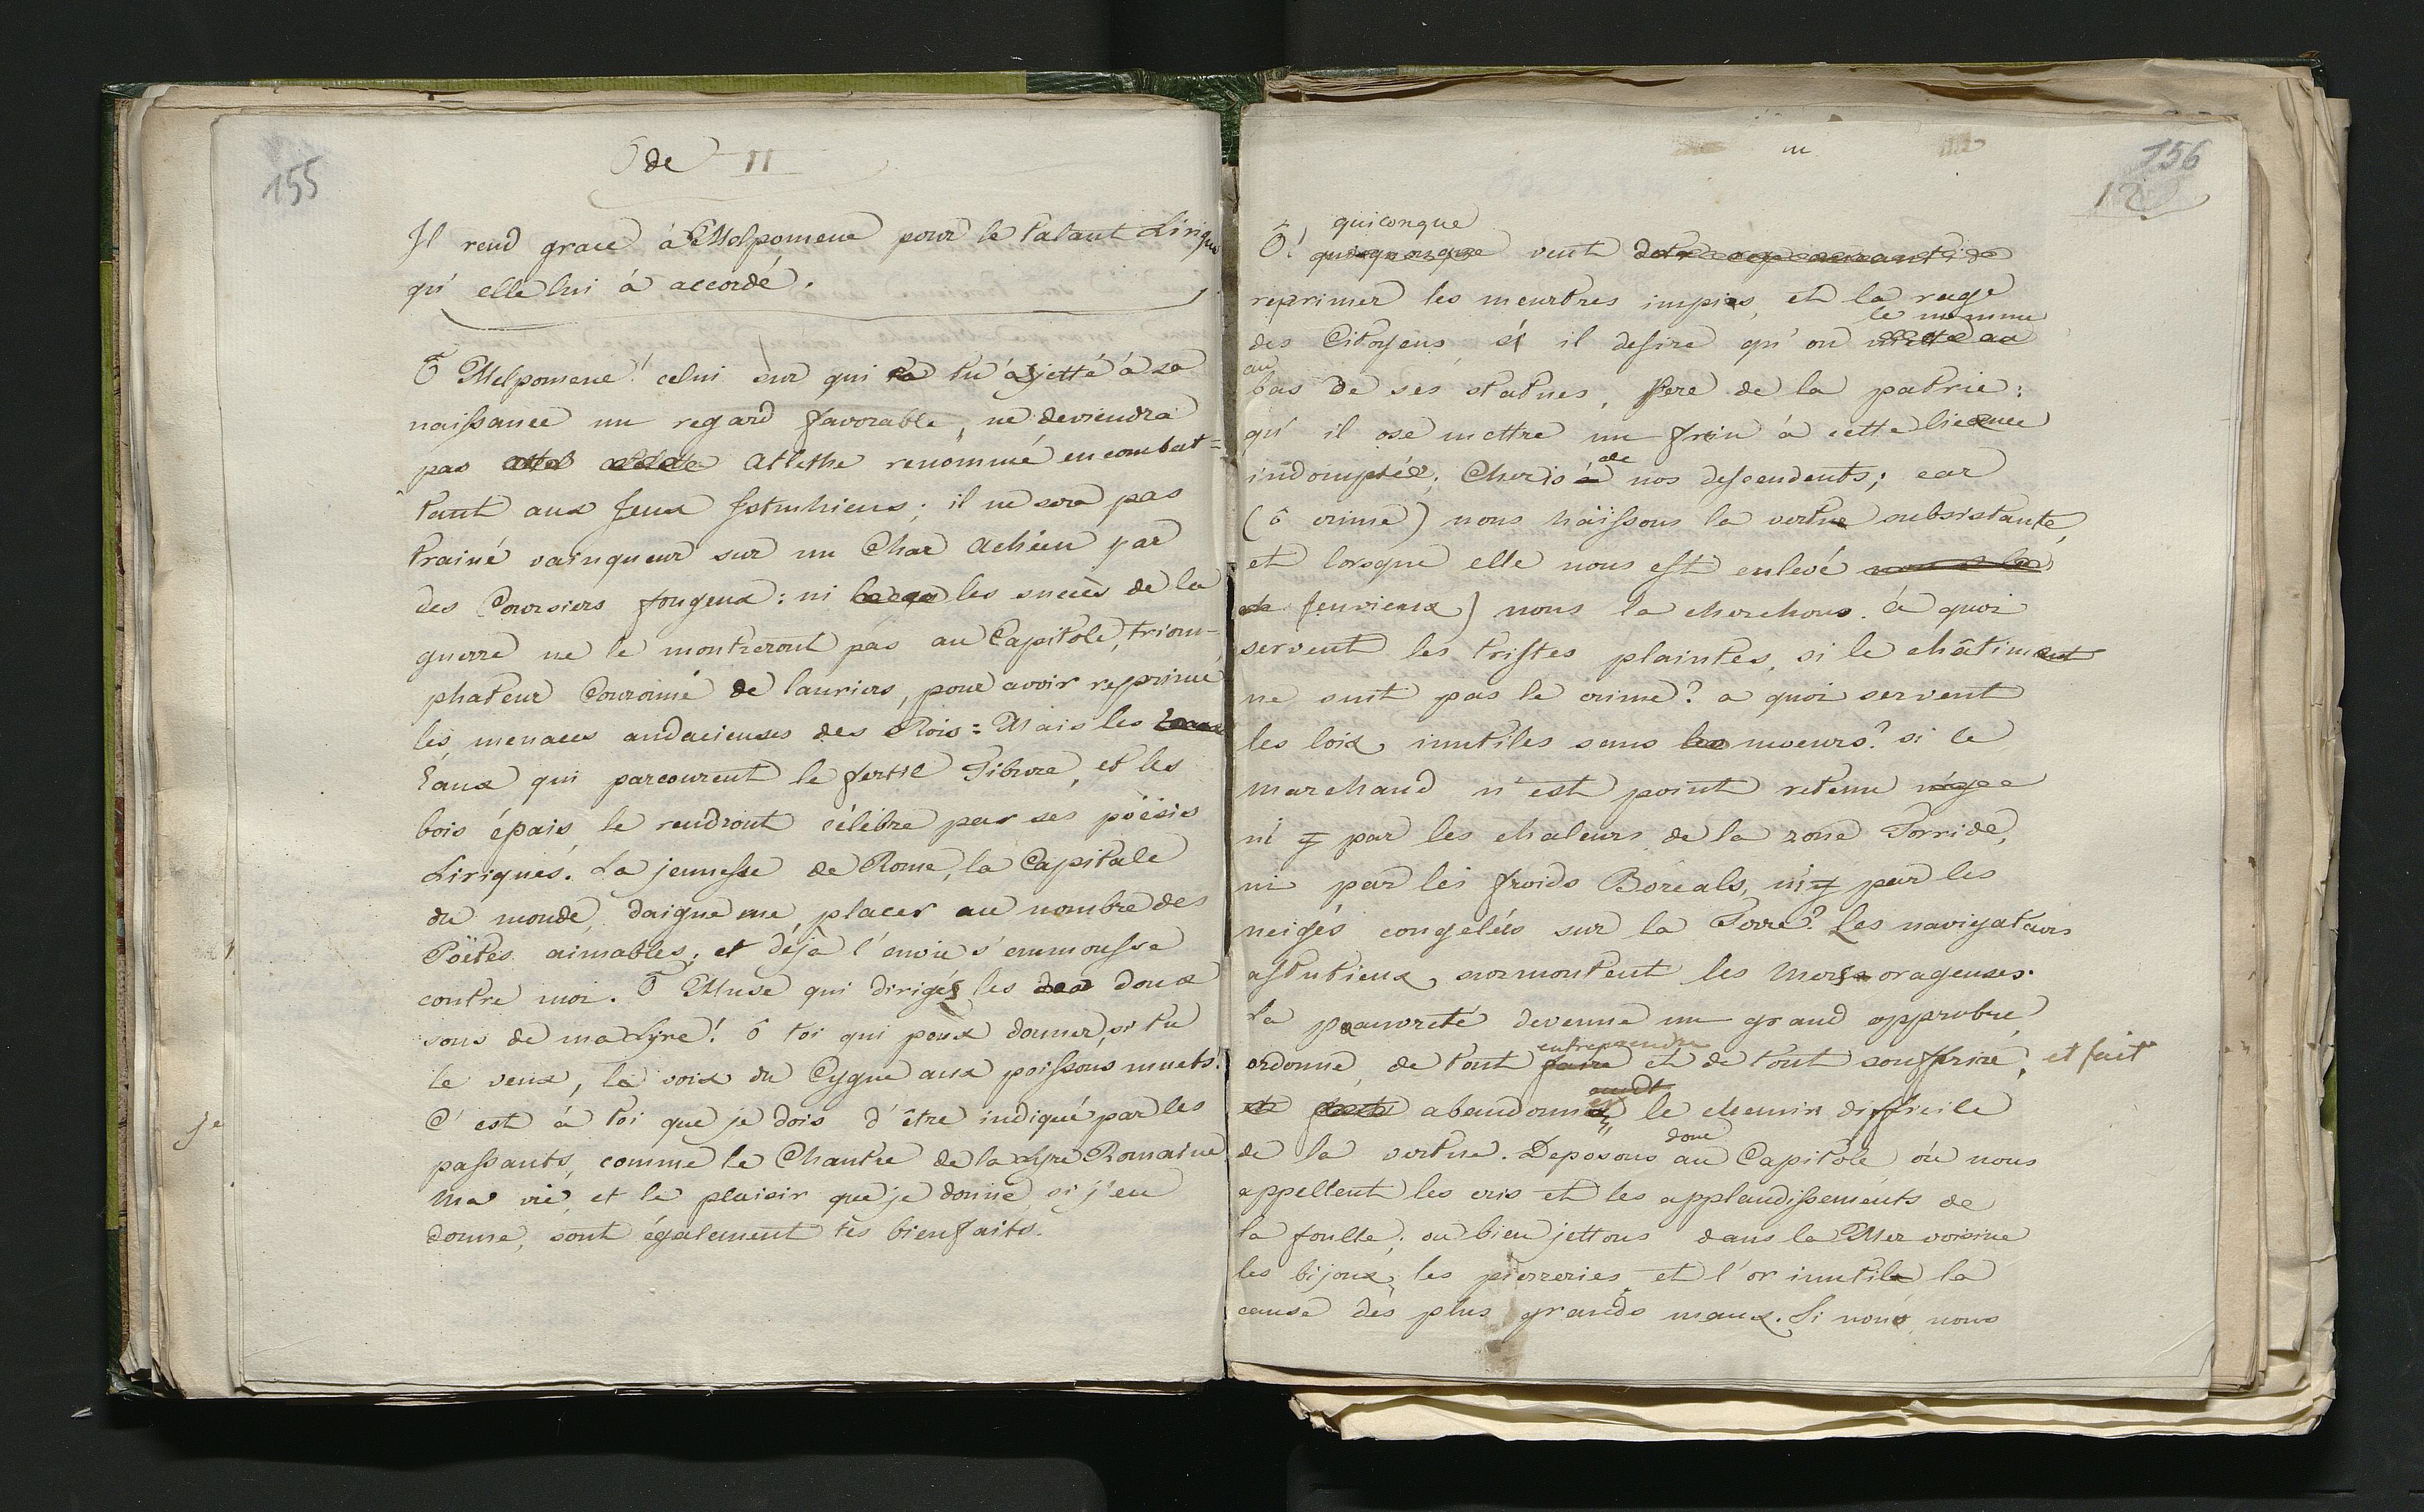 155
Ode II
Il rend grace à Melpomene pour le talant Lirique
qu' elle lui à accordé.
Ô Melpomene! celui sur qui tu às jetté à sa
naissance un regard favorable, ne deviendra
pas Atlethe renommé en combat=
tant aux Jeux Istmhiens; il ne sera pas
trainé vainqueur sur un Char Achéen par
des Coursiers fougeux: ni les succès de la
guerre ne le montreront pas au Capitole, triom-
phateur Couronné de lauriers, pour avoir reprimé
les menaces audacieuses des Rois: Mais les
Eaux qui parcourent le fertil Tibure, et les
bois épais le rendront célébre par ses poësies
Liriques. La jeunesse de Rome, la Capitale
du monde, daigne me placer au nombre des
Poëtes aimables; et déjà l'envie s'emmousse
contre moi. Ô Muse qui dirigés les doux
sons de ma Lyre! ô toi qui peux donner, si tu
le veux, la voix du Cygne aux poissons muets!
C'est à toi que je dois d'être indiqué par les
passants, comme le Chantre de la Lyre Romaine
Ma vie, et le plaisir que je donne, si j'en
donne, sont également tes bienfaits.
je
156
12
quiconque
Ô! quiquonque veut
reprimer les meurtres impies, et la rage
le nomme
des Citoyens, si il desire qu'on mette au
au
bas de ses statues, Pere de la patrie:
qu' il ose mettre un frein à cette licence
de
indomptée; Cheris à nos descendents; car
(ô crime) nous haïssons la vertue subsistante,
et lorsque elle nous est enlevé
envieux) nous la cherchons. à quoi
servent les tristes plaintes, si le châtiment
ne suit pas le crime? a quoi servent
les loix inutiles sans les moeurs? si le
marchand n'est point retenu
ni par les chaleurs de la zone Torride,
ni par les froids Boreals, ni par les
neiges congelées sur la Terre? Les navigateurs
astutieux, surmontent les Mers orageuses.
la pauvreté devenue un grand opprobre,
entreprendre
ordonne, de tout faire et de tout souffrire, et fait
et faite abandonner le chemin difficile
donc
de la vertue. Deposons au Capitole où nous
appellent les cris et les applaudissements de
la foulle; ou bien jettons dans la Mer voisine
les bijoux, les pierreries et l'or inutile la
cause dès plus grands maux. Si nous nous